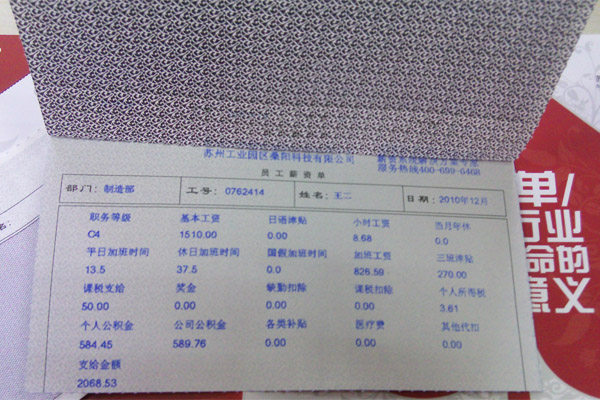 苏州工业园区桑阳科技有限公司
服务热线400-699-6468
员工薪资单
部门:制造部 工号:0762414 姓名:王二 日期:2010年12月
职务等级 基本工资 日语津贴 小时工资 当月年休
C4 1510.00 0.00 8.68 0.0
平日加班时间 休日加班时间 国假加班时间 加班工资 三班津贴
13.5 37.5 0.0 826.59 270.00
课税支给 奖金 缺勤扣除 课税扣除 个人所得税
50.00 0.00 0.00 0.00 3.61
个人公积金 公司公积金 各类补贴 医疗费 其他代扣
584.45 589.76 0.00 0.00 0.00
支给金额
2068.53
单/
行业
命的
意义